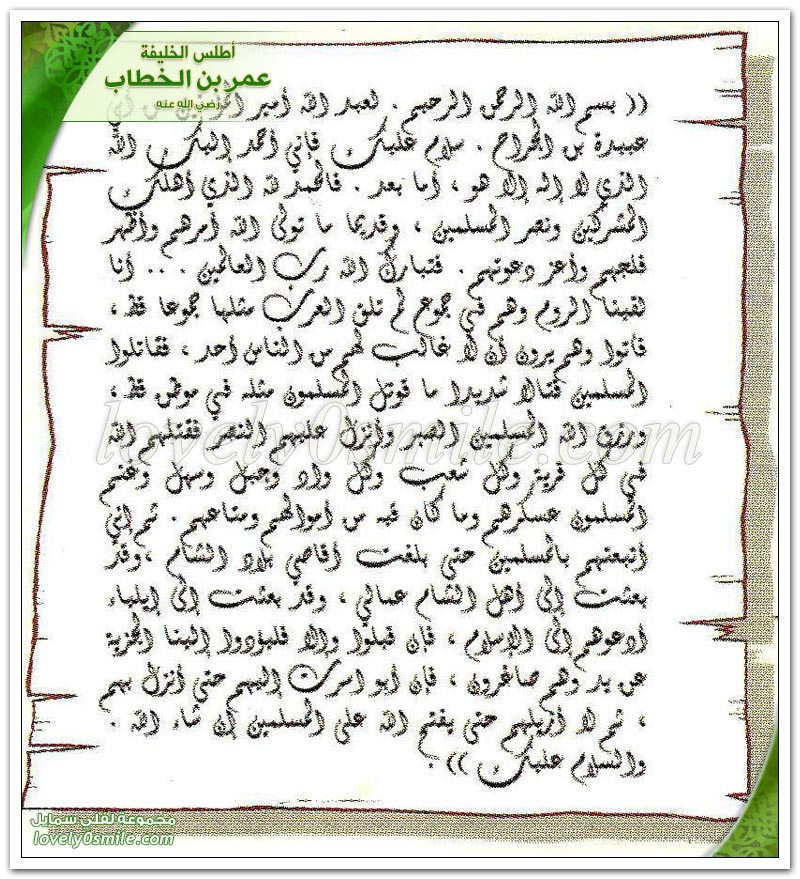 أطلس الخليفة
عمر بن الخطاب
رضي الله عنه
(( بسم الله الرحمن الرحيم . لعبد الله أمير المؤمنين من أبي
عبيدة بن الجراح . سلام عليك فاني أحمد إليك الله
الذي لا إله إلا هو ، أما بعد . فالحمد لله الذي أهلك
المشركين ونصر المسلمين ، وقديما ما تولى الله أمرهم وأظهر
فلجهم وأعز دعوتهم . فتبارك الله رب العالمين .... أنا
لقينا الروم وهم في جموع لم تلق العرب مثلها جموعا قط ،
فاتوا وهم يرون أن لا غالب لهم من الناس أحد ، فقاتلوا
المسلمين قتالا شديدا ما قوتل المسلمون مثله في موطن قط ،
ورزق الله المسلمين الصبر وأنزل عليهم النصر فقتلهم الله
في كل قرية وكل شعب وكل واد وجبل وسهل وغنم
المسلمون عسكرهم وما كان فيه من أموالهم ومتاعهم . ثم إني
أتبعتهم بالمسلمين حتى بلغت أقاصي بلاد الشام ، وقد
بعثت إلى أهل الشام عمالي ، وقد بعثت إلى إيلياء
أدعوهم إلى الإسلام ، فإن قبلوا وإلا فليؤدوا إلينا الجزية
عن يد وهم صاغرون ، فإن أبو امرت إليهم حتى أنزل بهم
، ثم لا أزيلهم حتى يفتح الله على المسلمين إن شاء الله .
والسلام عليك )) .
lovely0smile.com
مجموعة لفلي سمايل
lovely0smile.com